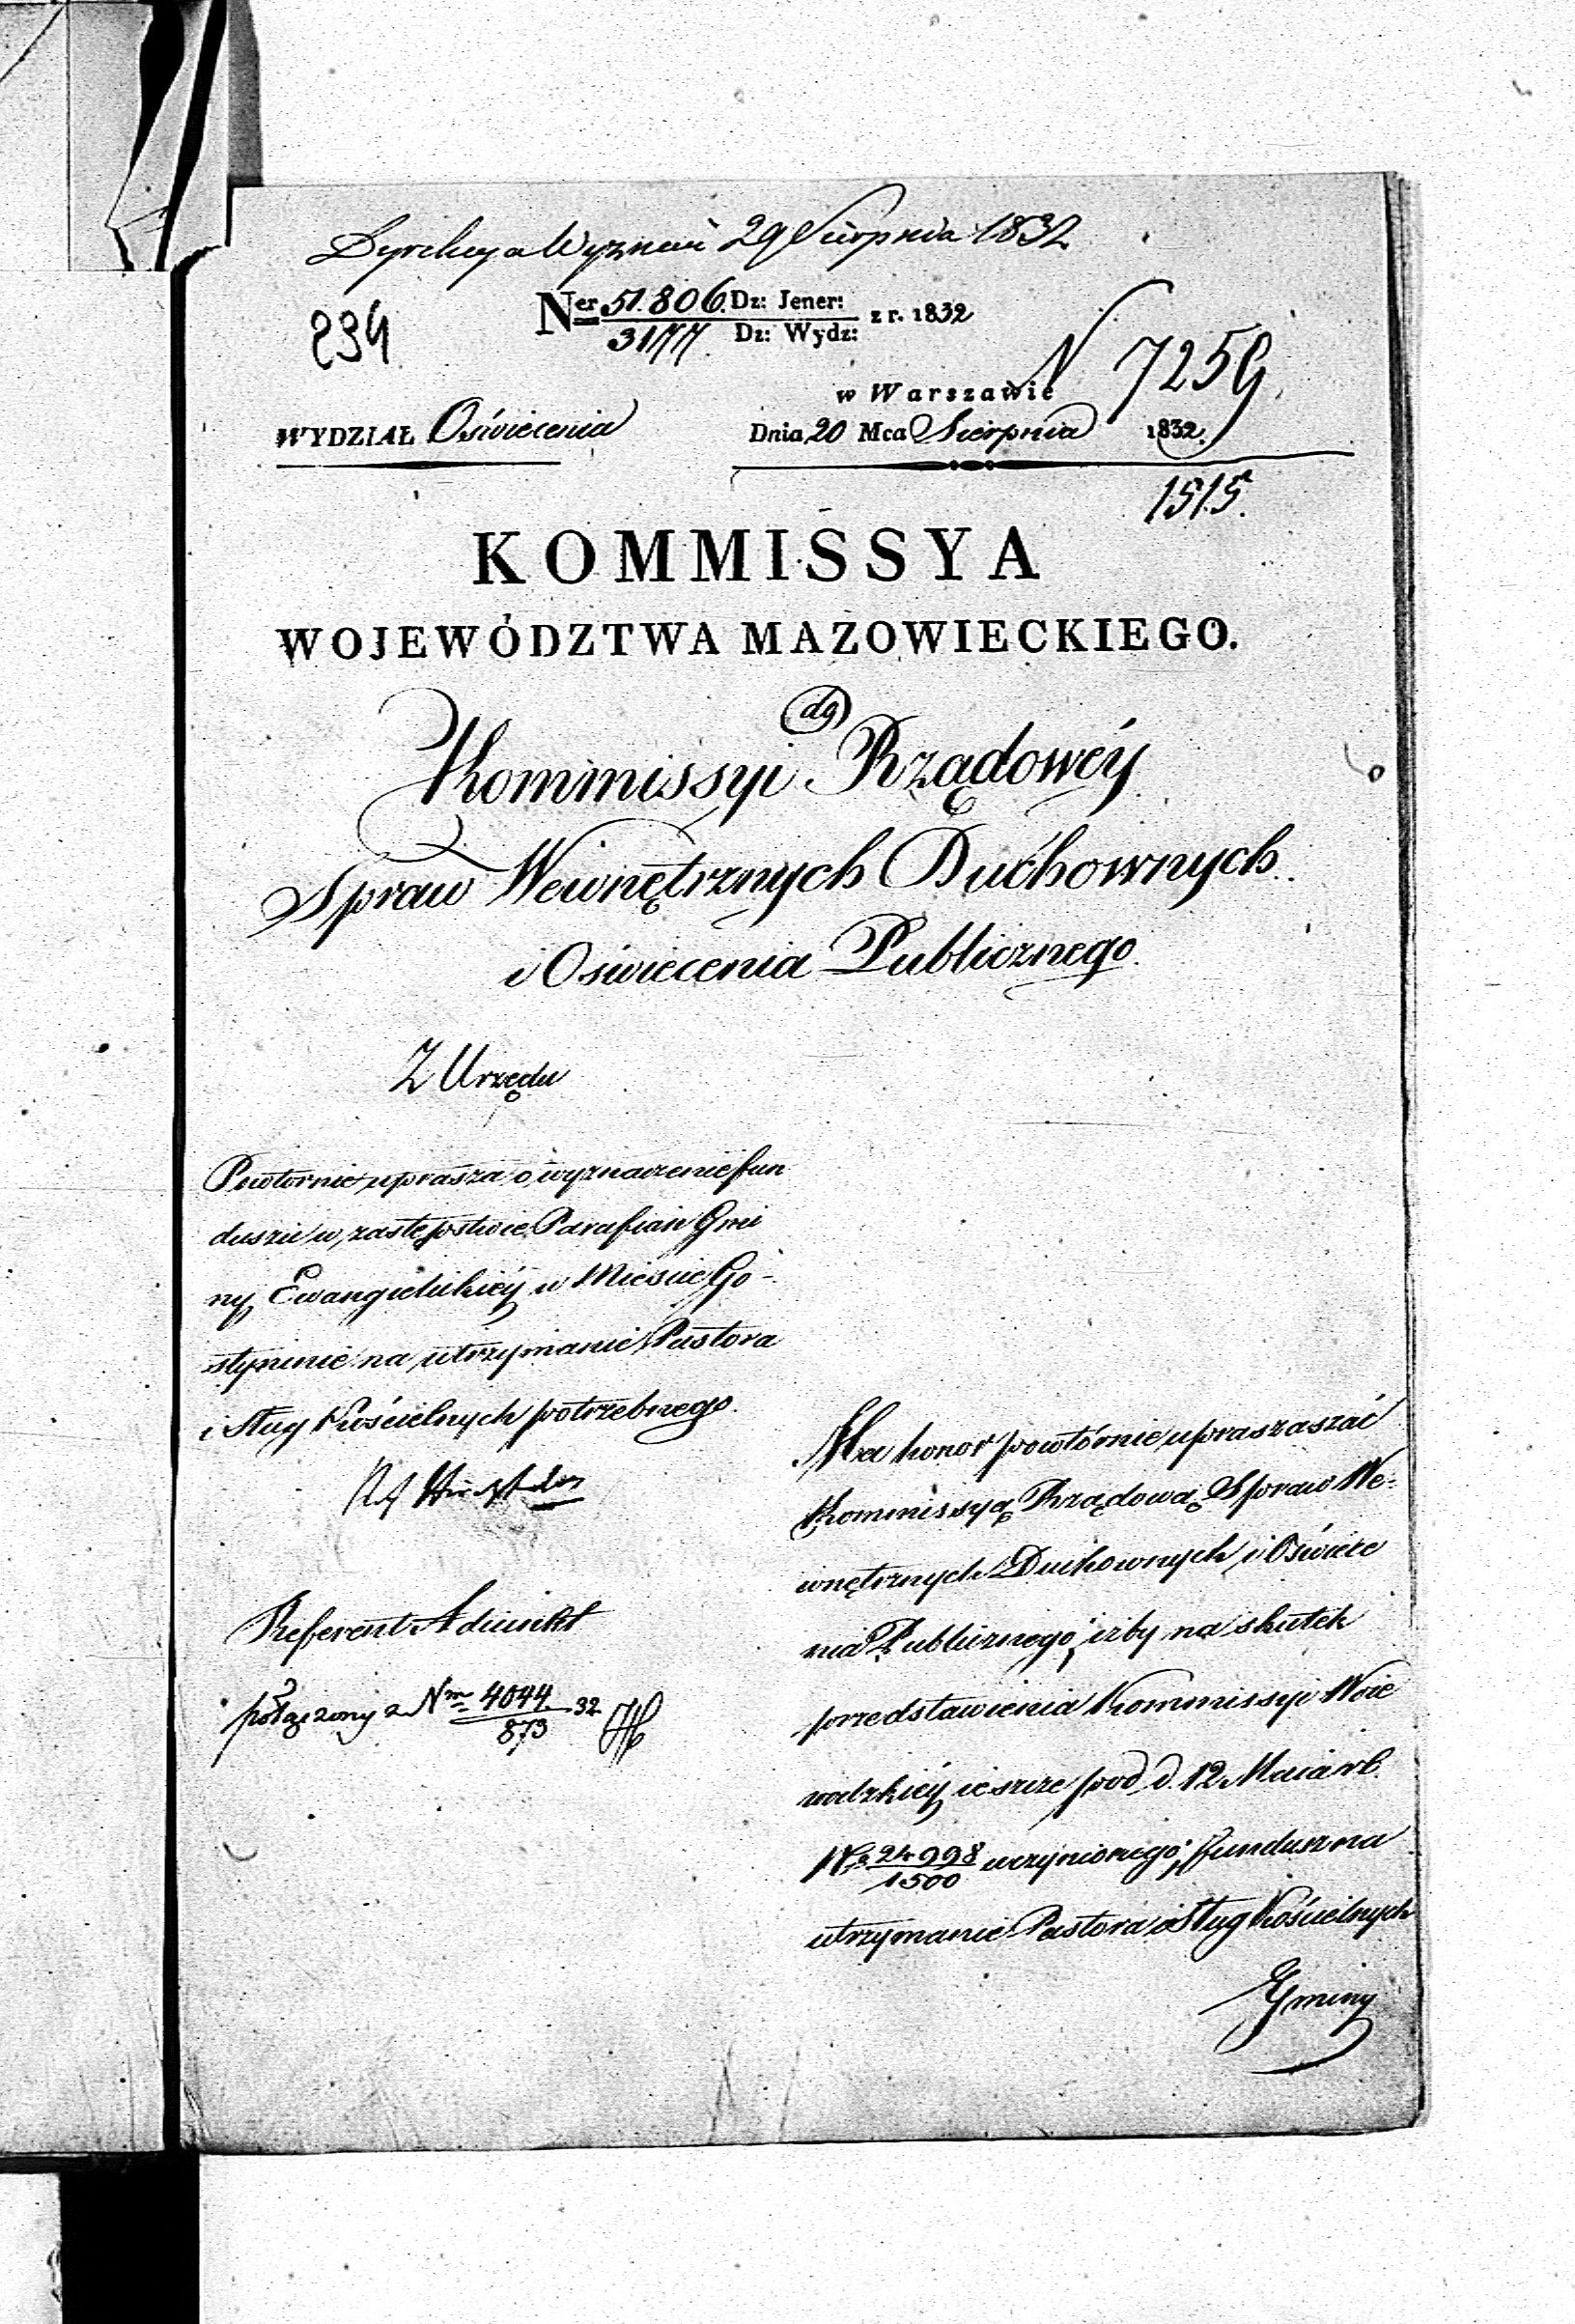 Dyrekcya Wyznań 29 Sierpnia 1832
234
Ner 51.806. Dz: Jener: z r. 1832
3177. Dz: Wydz:
N 7259
w Warszawie
WYDZIAŁ Oświecenia
Dnia 20 Mca Sierpnia 1832.
1515.
KOMMISSYA
WOJEWÓDZTWA MAZOWIECKIEGO.
Kommissyi Rządowéy
Spraw Wewnętrznych Duchownych
i Oświecenia Publicznego.
Z Urzędu
Powtornie uprasza o wyznaczenie fun
duszu w zastępstwie Parafian Gmi
ny Ewangielickiéy w Mieście Go-
styninie na utrzymanie Pastora
i Sług Kościelnych potrzebnego.
Referent Adiunkt
połączony z Nm 4044 32
873
Ma honor powtórnie upraszaszać
Kommissyą Rządową Spraw We-
wnętrznych Duchownych i Oświece
nia Publicznego, iżby na skutek
przedstawienia Kommissyi Woie
wodzkiéy ieszcze pod d. 12 Maia rb.
No 24998 uczynionego, fundusz na
1500
utrzymanie Pastora i Sług Kościelnych
Gminy